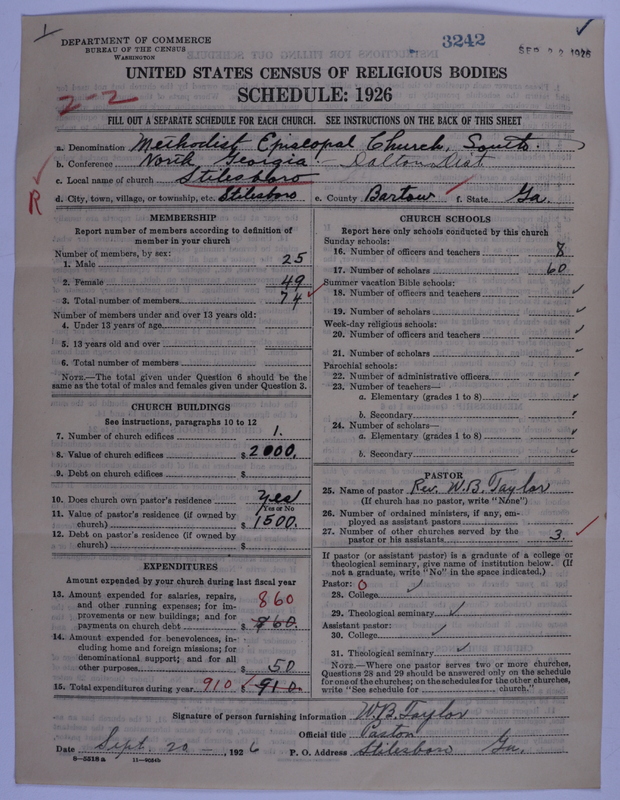 1
DEPARTMENT OF COMMERCE
BUREAU OF THE CENSUS
WASHINGTON
3242
SEP 22 1926
UNITED STATES CENSUS OF RELIGIOUS BODIES
SCHEDULE: 1926
2-2
FILL OUT A SEPARATE SCHEDULE FOR EACH CHURCH. SEE INSTRUCTIONS ON THE BACK OF THIS SHEET
a. Denomination Methodist Episcopal Church, South.
b. Conference North Georgia - Dalton Dist
c. Local name of church Stilesboro
R
d. City, town, village, or township, etc. Stilesboro e. County Bartow f. State Ga.
MEMBERSHIP
Report number of members according to definition of
member in your church
Number of members, by sex:
1. Male 25
2. Female 49
3. Total number of members 74
Number of members under and over 13 years old:
4. Under 13 years of age
5. 13 years old and over
6. Total number of members
NOTE.—The total given under Question 6 should be the
same as the total of males and females given under Question 3.
CHURCH BUILDINGS
See instructions, paragraphs 10 to 12
7. Number of church edifices 1.
8. Value of church edifices $ 2000.
9. Debt on church edifices $
10. Does church own pastor's residence Yes
Yes or No
11. Value of pastor's residence (if owned by
church) $ 1500.
12. Debt on pastor's residence (if owned by
church) $
EXPENDITURES
Amount expended by your church during last fiscal year
13. Amount expended for salaries, repairs, 860
and other running expenses; for im-
provements or new buildings; and for
payments on church debt $ 860.
14. Amount expended for benevolences, in-
cluding home and foreign missions; for
denominational support; and for all
other purposes $ 50
15. Total expenditures during year 910 $ 910.
CHURCH SCHOOLS
Report here only schools conducted by this church
Sunday schools:
16. Number of officers and teachers 8
17. Number of scholars 60
Summer vacation Bible schools:
18. Number of officers and teachers
19. Number of scholars
Week-day religious schools:
20. Number of officers and teachers
21. Number of scholars
Parochial schools:
22. Number of administrative officers
23. Number of teachers—
a. Elementary (grades 1 to 8)
b. Secondary
24. Number of scholars—
a. Elementary (grades 1 to 8)
b. Secondary
PASTOR
25. Name of pastor Rev. W.B. Taylor
(If church has no pastor, write "None")
26. Number of ordained ministers, if any, em-
ployed as assistant pastors
27. Number of other churches served by the
pastor or his assistants 3.
If pastor (or assistant pastor) is a graduate of a college or
theological seminary, give name of institution below. (If
not a graduate, write "No" in the space indicated.)
Pastor: 0
28. College
29. Theological seminary
Assistant pastor:
30. College
31. Theological seminary
NOTE.—Where one pastor serves two or more churches,
Questions 28 and 29 should be answered only on the schedule
for one of the churches; on the schedules for the other churches,
write "See schedule for church."
Signature of person furnishing information W.B. Taylor
Official title Pastor
Date Sept. 20 - , 1926 P. O. Address Stilesboro Ga.
8—5518 a 11—9054b